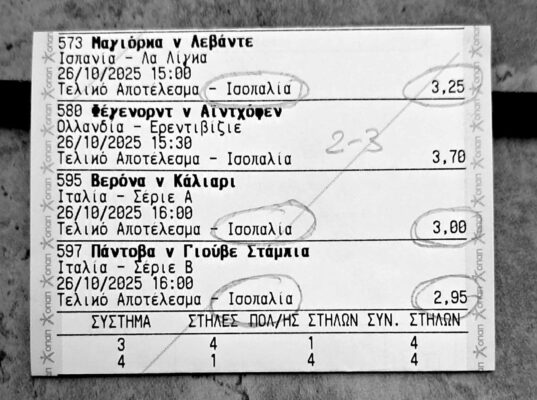 573 Μαγιόρκα v Λεβάντε
Ισπανία - Λα Λίγκα
26/10/2025 15:00
Τελικό Αποτέλεσμα - Ισοπαλία 3,25
580 Φέγενορντ v Αϊντχόφεν
Ολλανδία - Ερεντιβίζιε
26/10/2025 15:30
Τελικό Αποτέλεσμα - Ισοπαλία 3,70
2-3
595 Βερόνα v Κάλιαρι
Ιταλία - Σέριε Α
26/10/2025 16:00
Τελικό Αποτέλεσμα - Ισοπαλία 3,00
597 Πάντοβα v Γιούβε Στάμπια
Ιταλία - Σέριε Β
26/10/2025 16:00
Τελικό Αποτέλεσμα - Ισοπαλία 2,95
ΣΥΣΤΗΜΑ ΣΤΗΛΕΣ ΠΟΛ/ΗΣ ΣΤΗΛΩΝ ΣΥΝ. ΣΤΗΛΩΝ
3 4 1 4
4 1 4 4